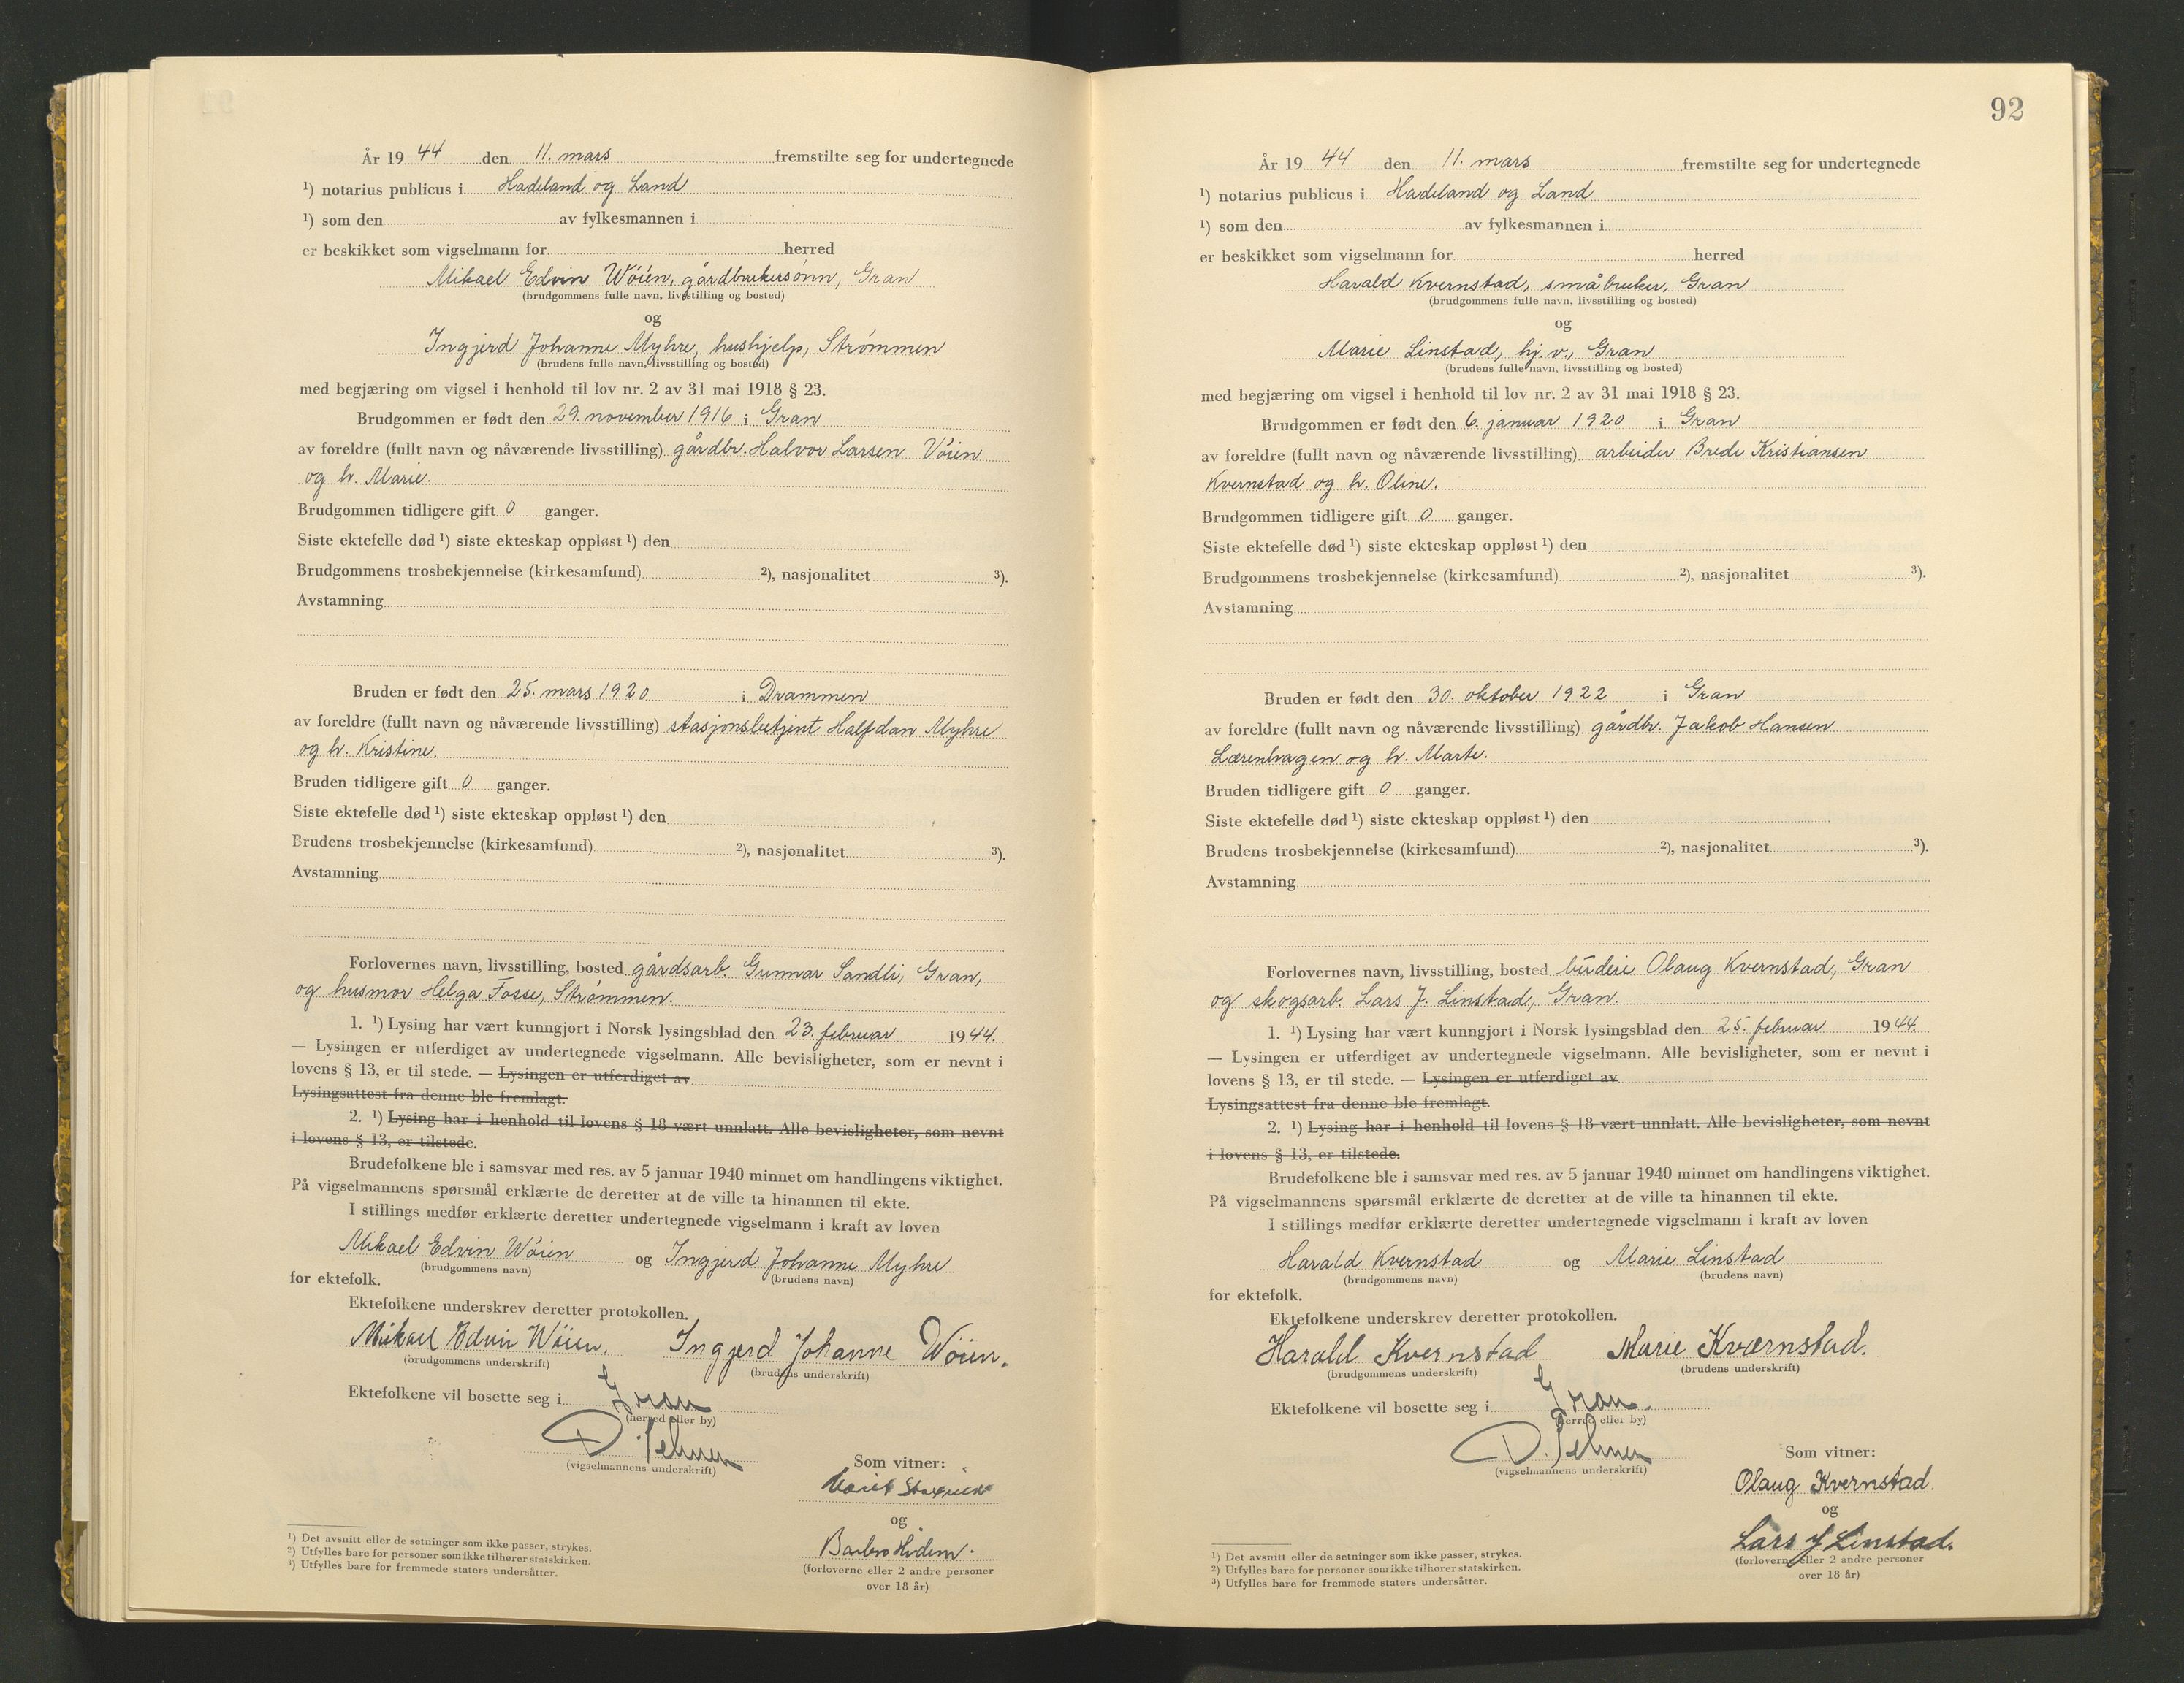 År 19 44 den 11. mars fremstilte seg for undertegnede
¹) notarius publicus i Hadeland og Land
¹) som den av fylkesmannen i
er beskikket som vigselmann for herred
Mikael Edvin Wöien, gårdbrukersönn, Gran
(brudgommens fulle navn, livsstilling og bosted)
og
Ingjerd Johanne Myhre, hushjelp, Strömmen
(brudens fulle navn, livsstilling og bosted)
med begjæring om vigsel i henhold til lov nr. 2 av 31 mai 1918 § 23.
Brudgommen er født den 29. november 1916 i Gran
av foreldre (fullt navn og nåværende livsstilling) gårdbr. Halvor Larsen Vöien
og h. Marie.
Brudgommen tidligere gift 0 ganger.
Siste ektefelle død ¹) siste ekteskap oppløst ¹) den
Brudgommens trosbekjennelse (kirkesamfund) ²), nasjonalitet ³).
Avstamning
Bruden er født den 25. mars 1920 i Drammen
av foreldre (fullt navn og nåværende livsstilling) stasjonsbetjent Halfdan Myhre
og h. Kristine.
Bruden tidligere gift 0 ganger.
Siste ektefelle død ¹) siste ekteskap oppløst ¹) den
Brudens trosbekjennelse (kirkesamfund) ²), nasjonalitet ³).
Avstamning
Forlovernes navn, livsstilling, bosted gårdsarb. Gunnar Sandli, Gran,
og husmor Helga Fosse, Strömmen.
1. ¹) Lysing har vært kunngjort i Norsk lysingsblad den 23. februar 1944.
— Lysingen er utferdiget av undertegnede vigselmann. Alle bevisligheter, som er nevnt i
lovens § 13, er til stede. — Lysingen er utferdiget av
Lysingsattest fra denne ble fremlagt.
2. ¹) Lysing har i henhold til lovens § 18 vært unnlatt. Alle bevisligheter, som nevnt
i lovens § 13, er tilstede.
Brudefolkene ble i samsvar med res. av 5 januar 1940 minnet om handlingens viktighet.
På vigselmannens spørsmål erklærte de deretter at de ville ta hinannen til ekte.
I stillings medfør erklærte deretter undertegnede vigselmann i kraft av loven
Mikael Edvin Wöien og Ingjerd Johanne Myhre
(brudgommens navn) (brudens navn)
for ektefolk.
Ektefolkene underskrev deretter protokollen.
Mikael Edvin Wöien. Ingjerd Johanne Wöien.
(brudgommens underskrift) (brudens underskrift)
Ektefolkene vil bosette seg i Gran
(herred eller by)
D.
(vigselmannens underskrift)
Som vitner:
og
(forloverne eller 2 andre personer
over 18 år)
¹) Det avsnitt eller de setninger som ikke passer, strykes.
²) Utfylles bare for personer som ikke tilhører statskirken.
³) Utfylles bare for fremmede staters undersåtter.
92
År 19 44 den 11. mars fremstilte seg for undertegnede
¹) notarius publicus i Hadeland og Land
¹) som den av fylkesmannen i
er beskikket som vigselmann for herred
Harald Kvernstad, småbruker, Gran
(brudgommens fulle navn, livsstilling og bosted)
og
Marie Linstad, hj.v., Gran
(brudens fulle navn, livsstilling og bosted)
med begjæring om vigsel i henhold til lov nr. 2 av 31 mai 1918 § 23.
Brudgommen er født den 6. januar 1920 i Gran
av foreldre (fullt navn og nåværende livsstilling) arbeider Brede Kristiansen
Kvernstad og h. Oline.
Brudgommen tidligere gift 0 ganger.
Siste ektefelle død ¹) siste ekteskap oppløst ¹) den
Brudgommens trosbekjennelse (kirkesamfund) ²), nasjonalitet ³).
Avstamning
Bruden er født den 30. oktober 1922 i Gran
av foreldre (fullt navn og nåværende livsstilling) gårdbr. Jakob Hansen
Lærenhagen og h. Marte.
Bruden tidligere gift 0 ganger.
Siste ektefelle død ¹) siste ekteskap oppløst ¹) den
Brudens trosbekjennelse (kirkesamfund) ²), nasjonalitet ³).
Avstamning
Forlovernes navn, livsstilling, bosted budeie Olaug Kvernstad, Gran
og skogsarb. Lars J. Linstad, Gran.
1. ¹) Lysing har vært kunngjort i Norsk lysingsblad den 25. februar 1944.
— Lysingen er utferdiget av undertegnede vigselmann. Alle bevisligheter, som er nevnt i
lovens § 13, er til stede. — Lysingen er utferdiget av
Lysingsattest fra denne ble fremlagt.
2. ¹) Lysing har i henhold til lovens § 18 vært unnlatt. Alle bevisligheter, som nevnt
i lovens § 13, er tilstede.
Brudefolkene ble i samsvar med res. av 5 januar 1940 minnet om handlingens viktighet.
På vigselmannens spørsmål erklærte de deretter at de ville ta hinannen til ekte.
I stillings medfør erklærte deretter undertegnede vigselmann i kraft av loven
Harald Kvernstad og Marie Linstad
(brudgommens navn) (brudens navn)
for ektefolk.
Ektefolkene underskrev deretter protokollen.
Harald Kvernstad Marie Kværnstad.
(brudgommens underskrift) (brudens underskrift)
Ektefolkene vil bosette seg i Gran.
(herred eller by)
D.
(vigselmannens underskrift)
Som vitner:
Olaug Kvernstad.
og
Lars J Linstad.
(forloverne eller 2 andre personer
over 18 år)
¹) Det avsnitt eller de setninger som ikke passer, strykes.
²) Utfylles bare for personer som ikke tilhører statskirken.
³) Utfylles bare for fremmede staters undersåtter.